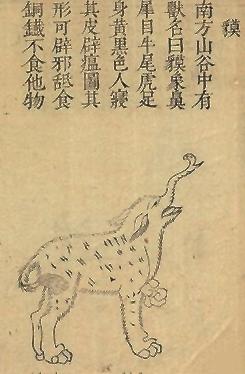 貘
南方山谷中有
獸名曰貘象鼻
犀目牛尾虎足
身黃黑色人寢
其皮辟瘟圖其
形可辟邪舐食
銅鐵不食他物